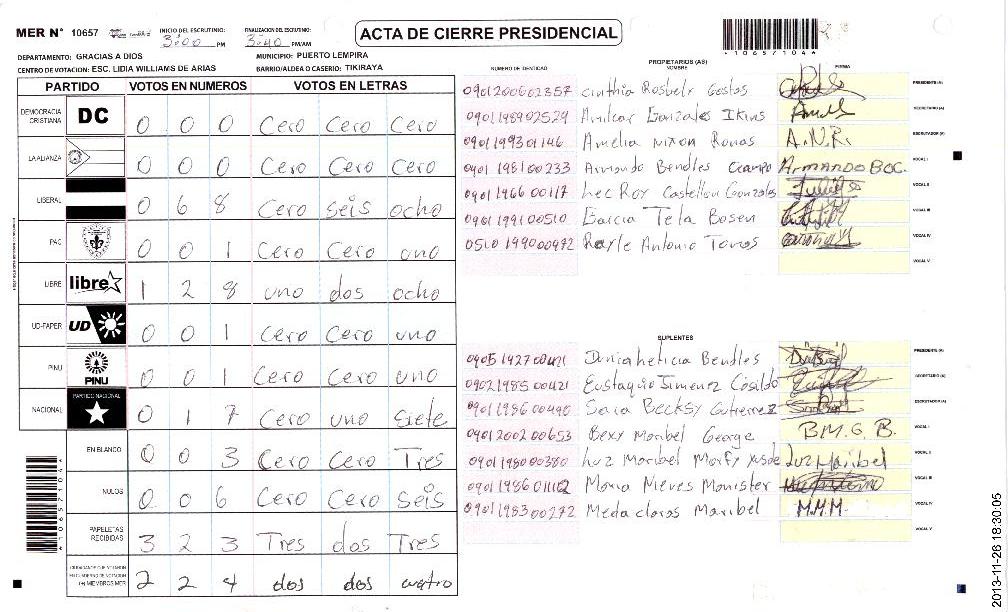 MER N° 10657
INICIO DEL ESCRUTINIO: 3:00 PM
FINALIZACION DEL ESCRUTINIO: 3:40 PM/AM
ACTA DE CIERRE PRESIDENCIAL
*10657104*
DEPARTAMENTO: GRACIAS A DIOS
MUNICIPIO: PUERTO LEMPIRA
CENTRO DE VOTACION: ESC. LIDIA WILLIAMS DE ARIAS
BARRIO/ALDEA O CASERIO: TIKIRAYA
PARTIDO VOTOS EN NUMEROS VOTOS EN LETRAS
DEMOCRACIA CRISTIANA DC 0 0 0 Cero Cero Cero
LA ALIANZA 0 0 0 Cero Cero Cero
LIBERAL 0 6 8 Cero seis ocho
PAC 0 0 1 Cero Cero uno
LIBRE libre 1 2 8 uno dos ocho
UD-FAPER UD 0 0 1 Cero Cero uno
PINU PINU 0 0 1 Cero Cero uno
NACIONAL PARTIDO NACIONAL 0 1 7 Cero uno siete
EN BLANCO 0 0 3 Cero Cero Tres
NULOS 0 0 6 Cero Cero seis
PAPELETAS RECIBIDAS 3 2 3 Tres dos Tres
CIUDADANOS QUE VOTARON EN CUADERNO DE VOTACION (+) MIEMBROS MER 2 2 4 dos dos cuatro
*10657104*
PROPIETARIOS (AS)
NUMERO DE IDENTIDAD NOMBRE FIRMA
0901200602357 Cinthia Rosbely PRESIDENTE (A)
0901198902529 Amilcar Gonzales SECRETARIO (A)
0901199301146 Amelia Nixon A.N.R. ESCRUTADOR (A)
0901198100233 Armando Bendles Ocampo ARMANDO BOC. VOCAL I
0901196600117 Castellon Gonzales VOCAL II
0901199100510 Garcia Tela Bosen VOCAL III
0510199000972 Antonio VOCAL IV
VOCAL V
SUPLENTES
Bendles PRESIDENTE (A)
0902198500421 Eustaquio Jimenez SECRETARIO (A)
0901198600440 Sara Becksy Gutierrez ESCRUTADOR (A)
0901200200653 Bexy Maribel George B.M.G.B. VOCAL I
0901198000380 Luz Maribel Luz Maribel VOCAL II
Maria Nieves VOCAL III
0901198300272 Maribel M.M.M. VOCAL IV
VOCAL V
2013-11-26 18:30:05